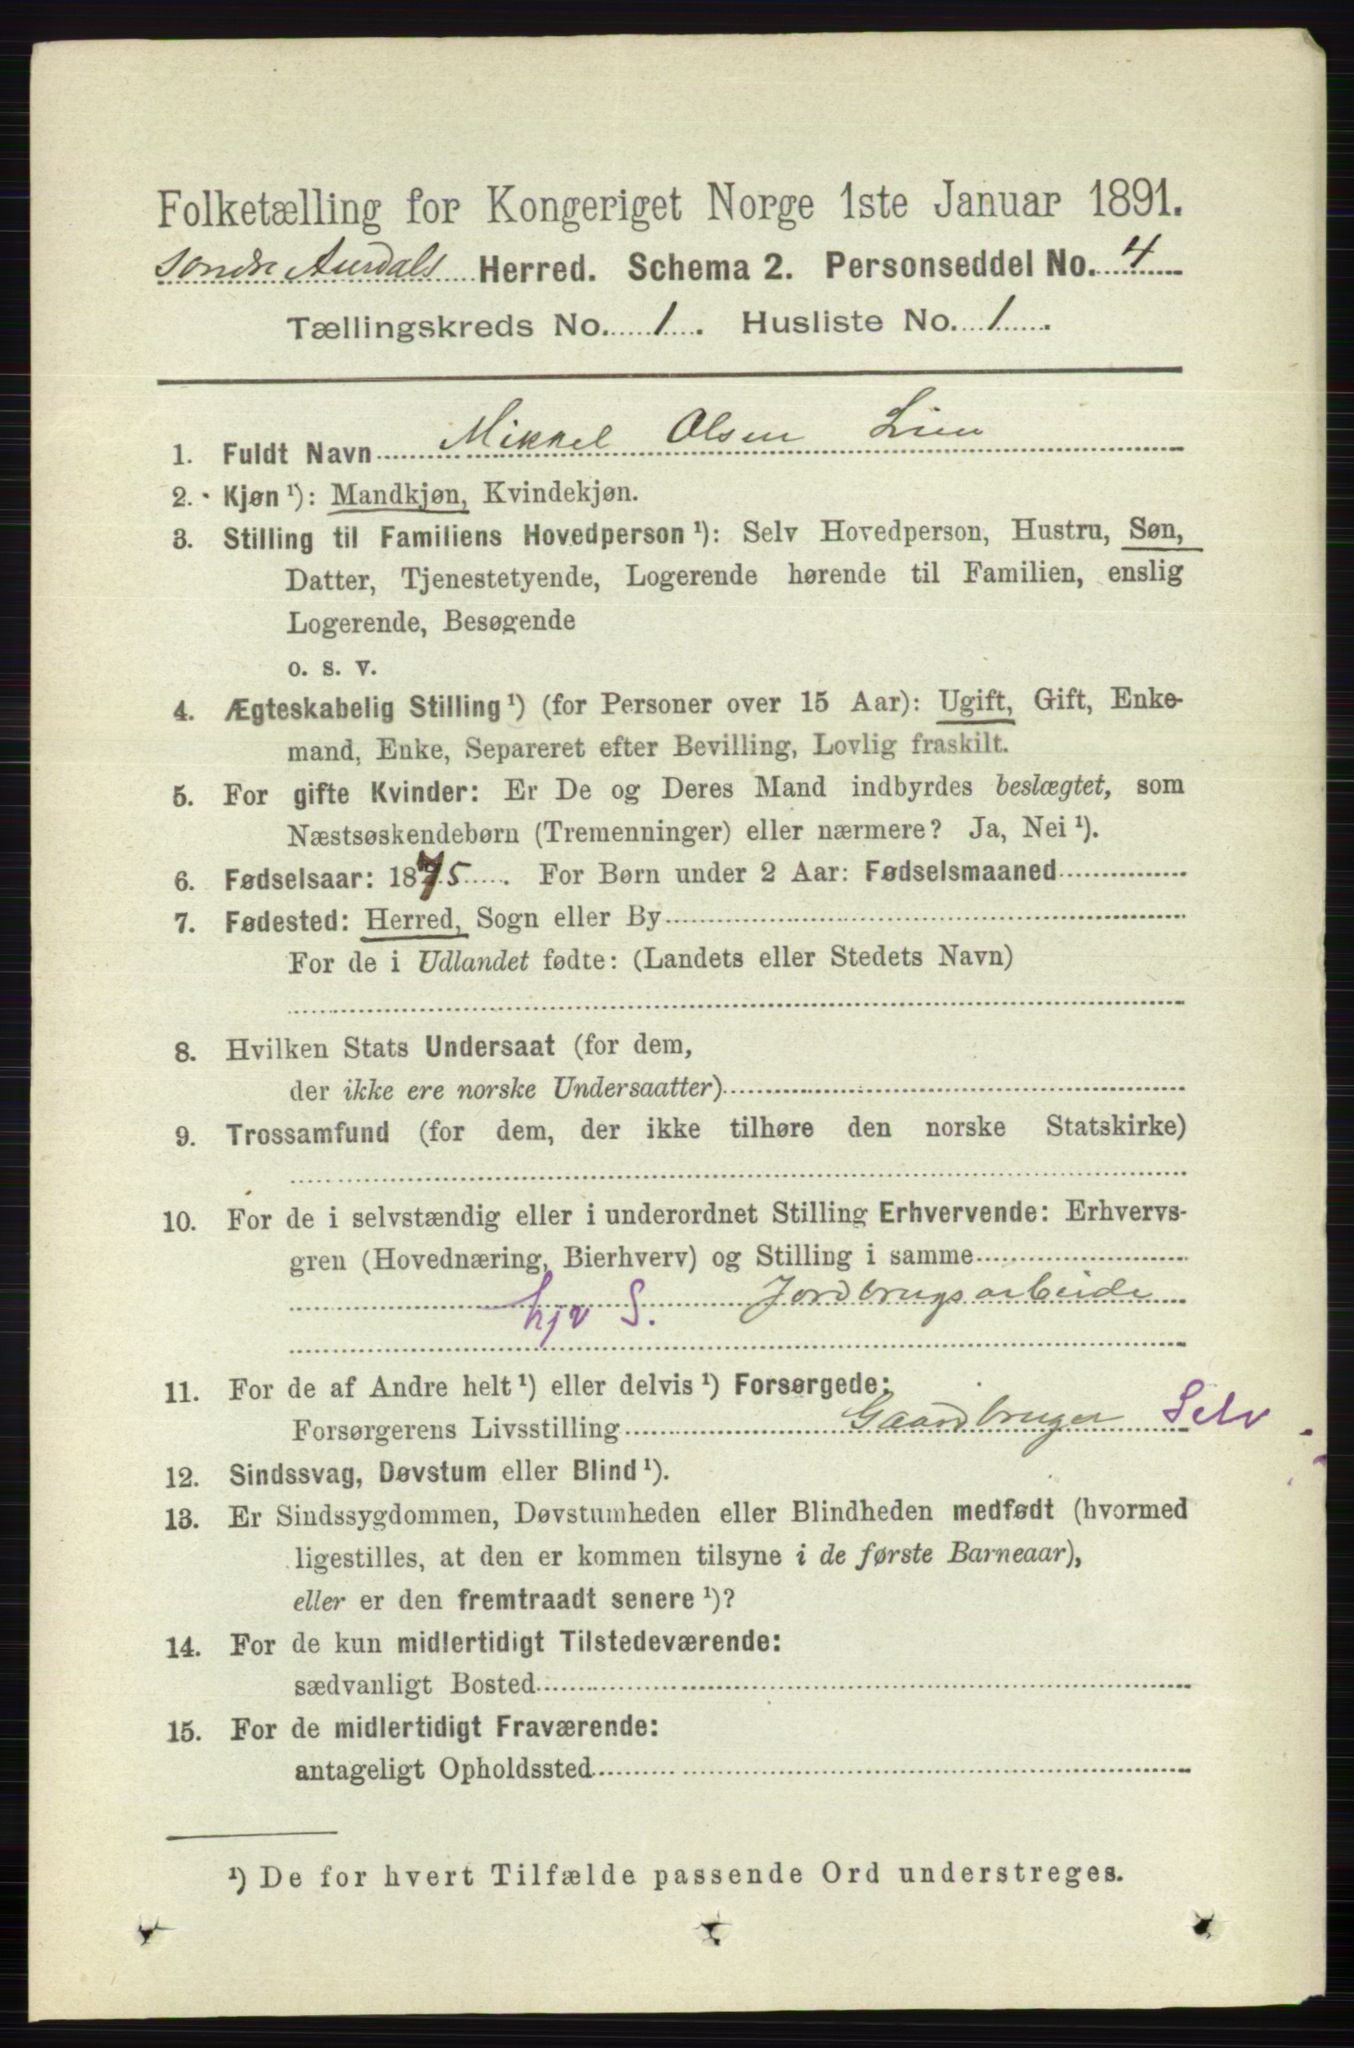 Folketælling for Kongeriget Norge 1ste Januar 1891.
Søndre Aurdals Herred. Schema 2. Personseddel No. 4
Tællingskreds No. 1. Husliste No. 1.
1. Fuldt Navn Mikkel Olsen Lien
2. Kjøn ¹): Mandkjøn, Kvindekjøn.
3. Stilling til Familiens Hovedperson ¹): Selv Hovedperson, Hustru, Søn,
Datter, Tjenestetyende, Logerende hørende til Familien, enslig
Logerende, Besøgende
o. s. v.
4. Ægteskabelig Stilling ¹) (for Personer over 15 Aar): Ugift, Gift, Enke-
mand, Enke, Separeret efter Bevilling, Lovlig fraskilt.
5. For gifte Kvinder: Er De og Deres Mand indbyrdes beslægtet, som
Næstsøskendebørn (Tremenninger) eller nærmere? Ja, Nei ¹).
6. Fødselsaar: 1875. For Børn under 2 Aar: Fødselsmaaned
7. Fødested: Herred, Sogn eller By
For de i Udlandet fødte: (Landets eller Stedets Navn)
8. Hvilken Stats Undersaat (for dem,
der ikke ere norske Undersaatter)
9. Trossamfund (for dem, der ikke tilhøre den norske Statskirke)
10. For de i selvstændig eller i underordnet Stilling Erhvervende: Erhvervs-
gren (Hovednæring, Bierhverv) og Stilling i samme
hjv S. Jordbrugsarbeide
11. For de af Andre helt ¹) eller delvis ¹) Forsørgede:
Forsørgerens Livsstilling Gaardbruger Selv
12. Sindssvag, Døvstum eller Blind ¹).
13. Er Sindssygdommen, Døvstumheden eller Blindheden medfødt (hvormed
ligestilles, at den er kommen tilsyne i de første Barneaar),
eller er den fremtraadt senere ¹)?
14. For de kun midlertidigt Tilstedeværende:
sædvanligt Bosted
15. For de midlertidigt Fraværende:
antageligt Opholdssted
¹) De for hvert Tilfælde passende Ord understreges.